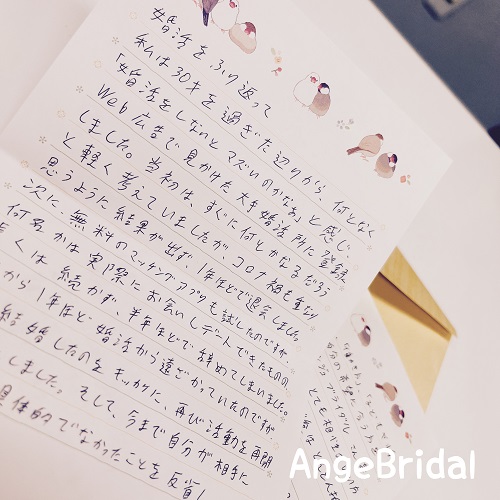 婚活をふり返って
私は30才を過ぎた辺りから、何となく
「婚活をしないとマズいのかなぁ」と感じ
Web広告で見かけた大手婚活所に登録
しました。当初は、すぐに何とかなるだろう
と軽く考えていましたが、コロナ禍も重なり
思うように結果が出ず、1年ほどで退会しました。
次に、無料のマッチングアプリも試したのですが
何名かは実際にお会いしデートできたものの
くは続かず、半年ほどで辞めてしまいました。
から1年ほど、婚活から遠ざかっていたのですが
結婚したのをキッカケに、再び活動を再開
しました。そして、今まで自分が相手に
具体的でなかったことを反省し
AngeBridal